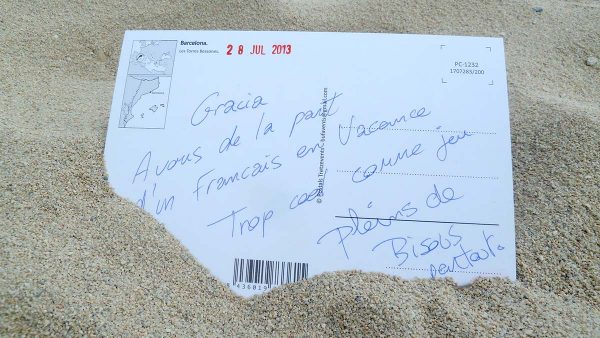 Barcelona.
Les Torres Bessones.
28 JUL 2013
PC-1232
1707283/200
Gracia
A vous de la part
d'un Francais en Vacance
Trop cool comme jeu
Pleins de
Bisous
partout.
8 436019